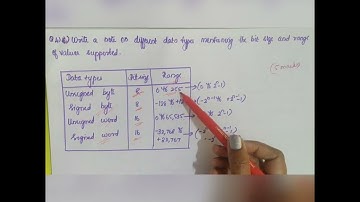 Q.1.b) Write a note on different data types mentioning the bit size and range
of values supported.
(5 marks)
Data types Bit size Range
Unsigned byte 8 0 to 255 → (0 to 2ⁿ-1)
Signed byte 8 -128 to +
Unsigned word 16 0 to 65,535
Signed word 16 -32,768 to
+32,767